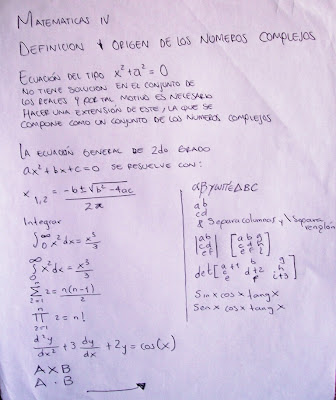 MATEMATICAS IV
DEFINICION Y ORIGEN DE LOS NUMEROS COMPLEJOS
ECUACIÓN DEL TIPO x²+a²=0
NO TIENE SOLUCION EN EL CONJUNTO DE
LOS REALES Y POR TAL MOTIVO ES NECESARIO
HACER UNA EXTENSIÓN DE ESTE, LA QUE SE
COMPONE COMO UN CONJUNTO DE LOS NUMEROS COMPLEJOS
LA ECUACIÓN GENERAL DE 2do GRADO
ax²+bx+c=0 SE RESUELVE CON:
x₁,₂ = (-b±√(b²-4ac))/2a
Integrar
∫₀^∞ x²dx = x³/3
∫₀^∞ x²dx = x³/3
∑ 2 = n(n-1)/2
∏ 2 = n!
d²y/dx² + 3 dy/dx + 2y = cos(x)
A×B
A·B
ΔBC
ab
cd
& Separa columnas y \\ Separa
renglón
|ab|
|cd|
|ef|
[a b g]
det [a+1 b g]
[d+2 h]
[i+3]
Sinx cosx tang x
Senx cosx tang x